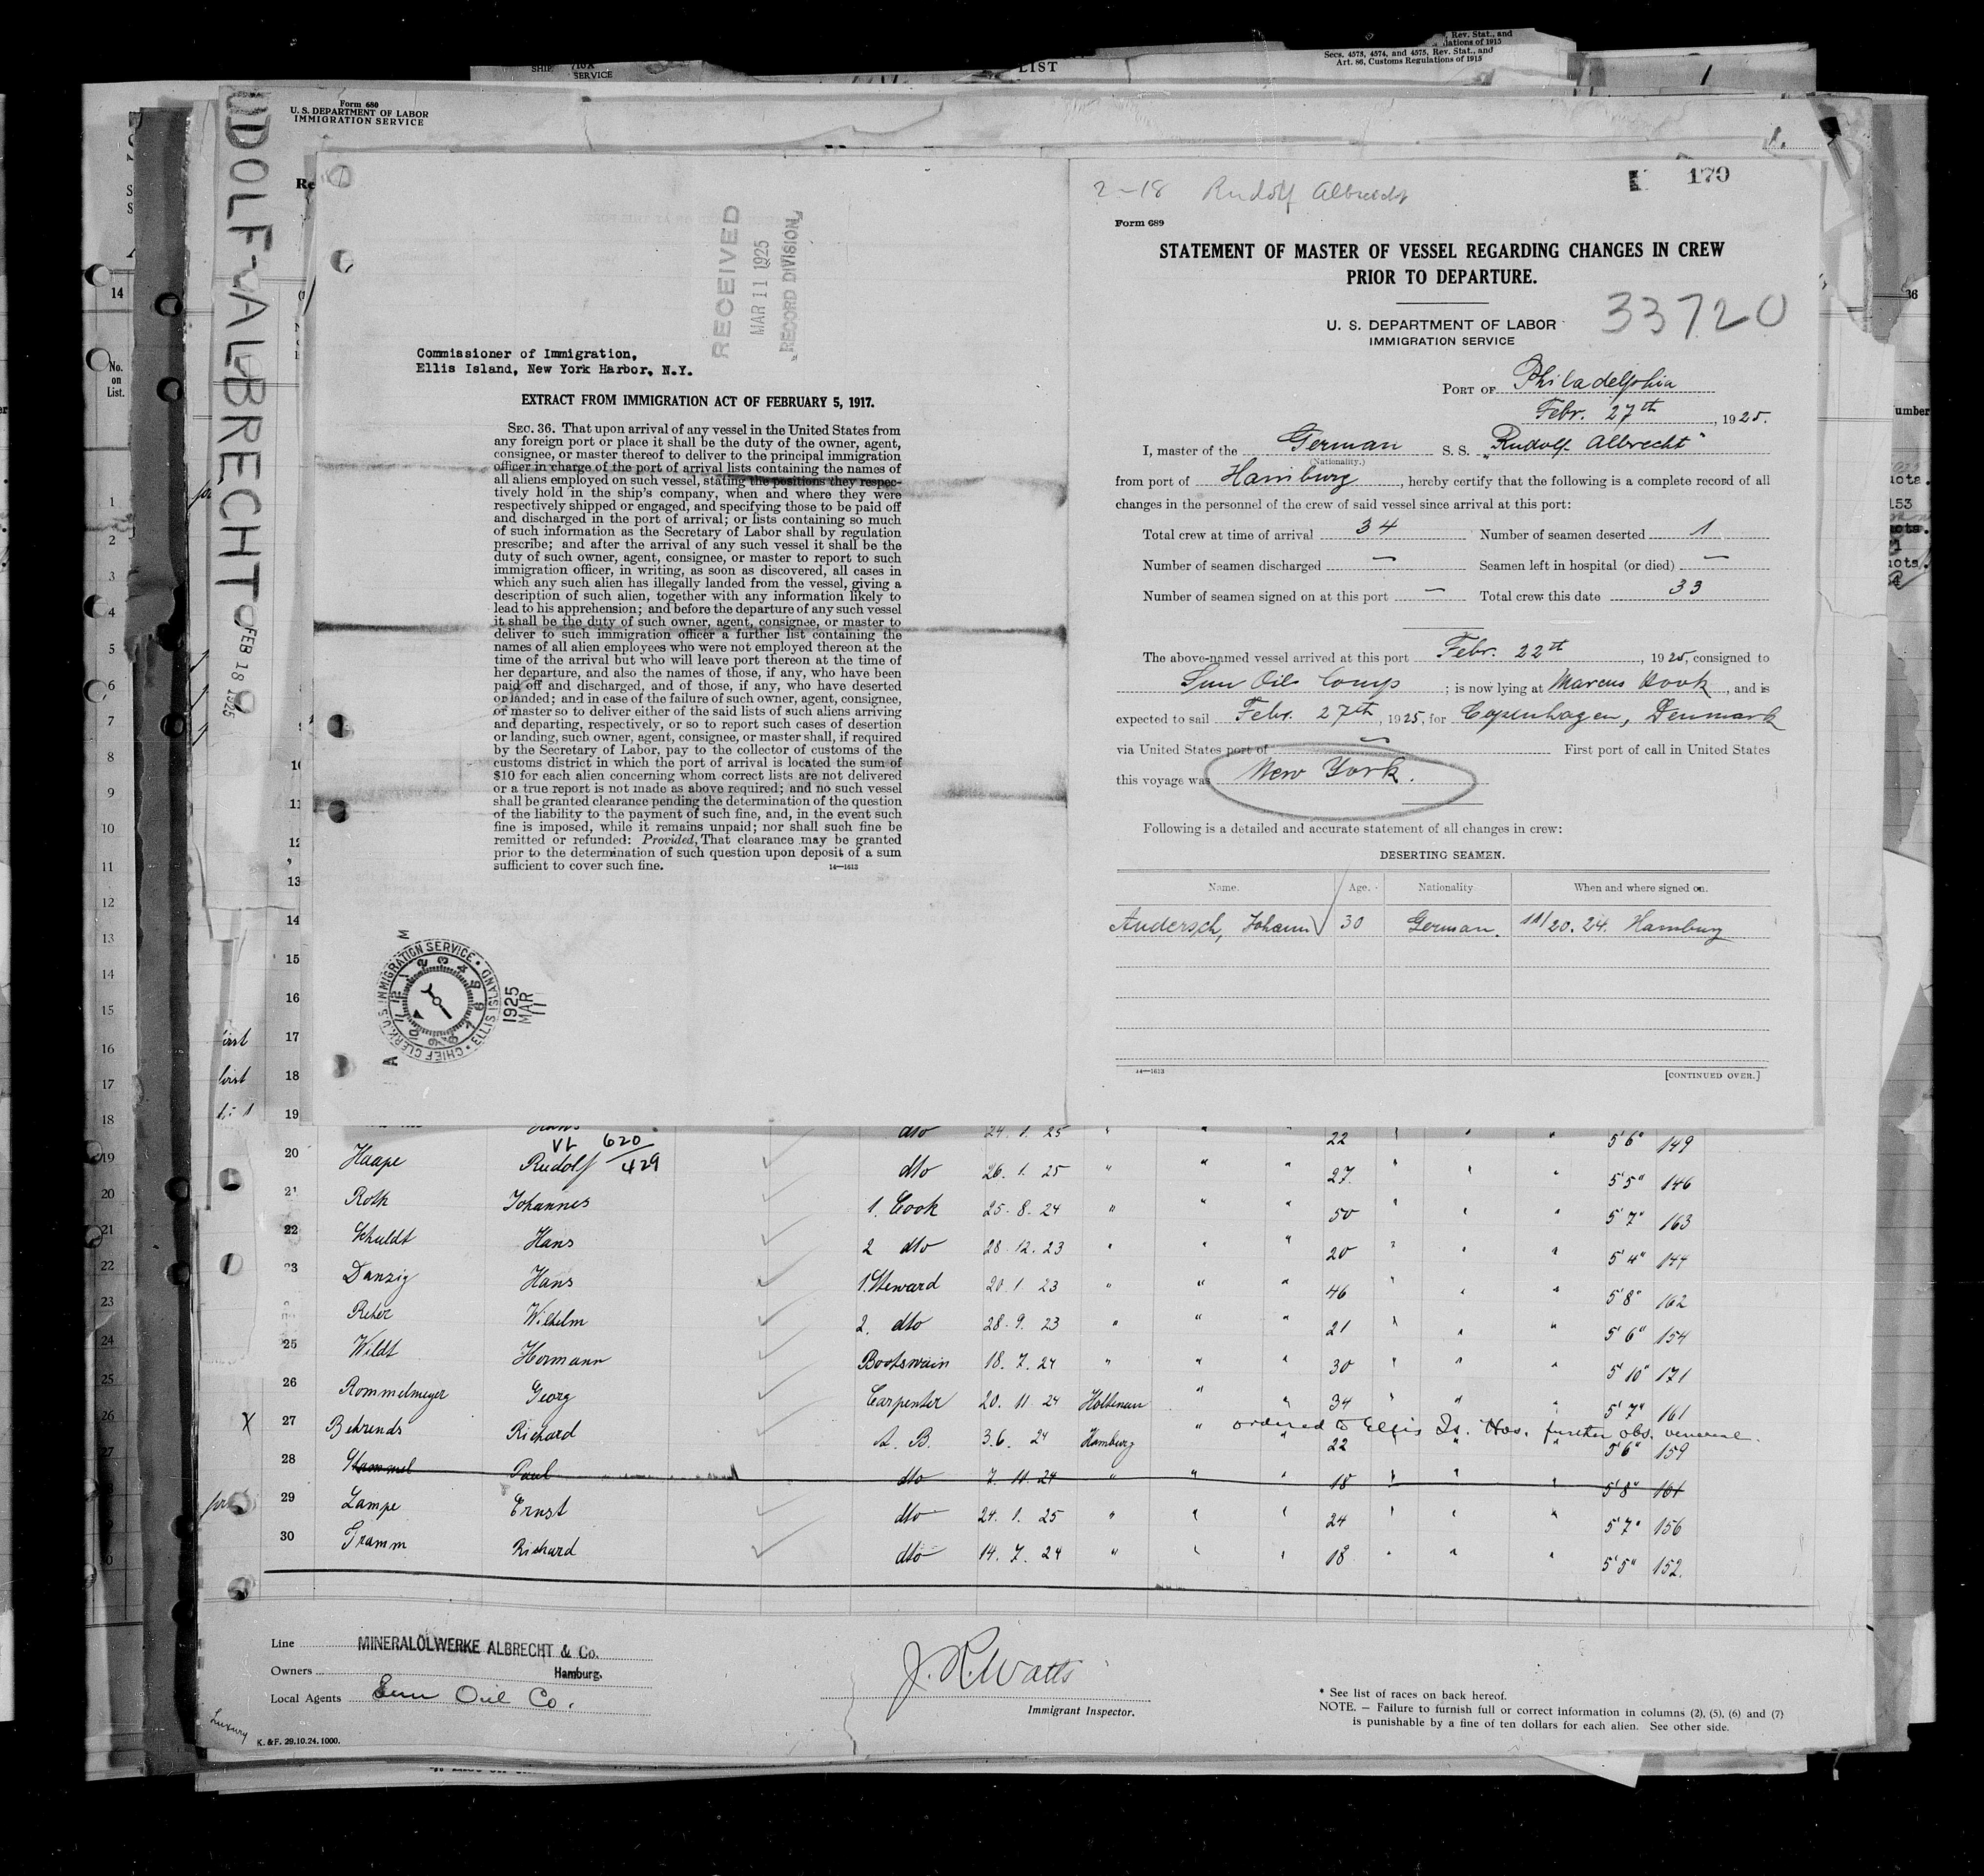 LIST
SERVICE
Rev. Stat., and
Secs. 4573, 4574, and 4575, Rev. Stat., and
Art. 86, Customs Regulations of 1915
Form 680
U. S. DEPARTMENT OF LABOR
IMMIGRATION SERVICE
UDOLF-ALBRECHT
FEB 18 1925
RECEIVED
MAR 11 1925
RECORD DIVISION
Commissioner of Immigration,
Ellis Island, New York Harbor, N.Y.
EXTRACT FROM IMMIGRATION ACT OF FEBRUARY 5, 1917.
SEC. 36. That upon arrival of any vessel in the United States from
any foreign port or place it shall be the duty of the owner, agent,
consignee, or master thereof to deliver to the principal immigration
officer in charge of the port of arrival lists containing the names of
all aliens employed on such vessel, stating the positions they respec-
tively hold in the ship's company, when and where they were
respectively shipped or engaged, and specifying those to be paid off
and discharged in the port of arrival; or lists containing so much
of such information as the Secretary of Labor shall by regulation
prescribe; and after the arrival of any such vessel it shall be the
duty of such owner, agent, consignee, or master to report to such
immigration officer, in writing, as soon as discovered, all cases in
which any such alien has illegally landed from the vessel, giving a
description of such alien, together with any information likely to
lead to his apprehension; and before the departure of any such vessel
it shall be the duty of such owner, agent, consignee, or master to
deliver to such immigration officer a further list containing the
names of all alien employees who were not employed thereon at the
time of the arrival but who will leave port thereon at the time of
her departure, and also the names of those, if any, who have been
paid off and discharged, and of those, if any, who have deserted
or landed; and in case of the failure of such owner, agent, consignee,
or master so to deliver either of the said lists of such aliens arriving
and departing, respectively, or so to report such cases of desertion
or landing, such owner, agent, consignee, or master shall, if required
by the Secretary of Labor, pay to the collector of customs of the
customs district in which the port of arrival is located the sum of
$10 for each alien concerning whom correct lists are not delivered
or a true report is not made as above required; and no such vessel
shall be granted clearance pending the determination of the question
of the liability to the payment of such fine, and, in the event such
fine is imposed, while it remains unpaid; nor shall such fine be
remitted or refunded: Provided, That clearance may be granted
prior to the determination of such question upon deposit of a sum
sufficient to cover such fine. 14—1613
CHIEF CLERK U.S. IMMIGRATION SERVICE • ELLIS ISLAND •
1925 MAR 11
2-18 Rudolf Albrecht
179
Form 689
STATEMENT OF MASTER OF VESSEL REGARDING CHANGES IN CREW
PRIOR TO DEPARTURE.
33720
U. S. DEPARTMENT OF LABOR
IMMIGRATION SERVICE
PORT OF Philadelphia
Febr. 27th, 1925.
I, master of the German S. S. "Rudolf Albrecht"
(Nationality.)
from port of Hamburg, hereby certify that the following is a complete record of all
changes in the personnel of the crew of said vessel since arrival at this port:
Total crew at time of arrival 34 Number of seamen deserted 1
Number of seamen discharged — Seamen left in hospital (or died) —
Number of seamen signed on at this port — Total crew this date 33
The above-named vessel arrived at this port Febr. 22th, 1925, consigned to
Sun Oil Comp; is now lying at Marcus Hook, and is
expected to sail Febr. 27th, 1925, for Copenhagen, Denmark
via United States port of — First port of call in United States
this voyage was New York.
Following is a detailed and accurate statement of all changes in crew:
DESERTING SEAMEN.
Name. Age. Nationality When and where signed on.
Andersch, Johann 30 German. 11/20.24. Hamburg
14—1613 [CONTINUED OVER.]
dto 24. 1. 25 " " " 22 " " " 5'6" 149
VL 620/429
20 Haape Rudolf dto 26. 1. 25 " " " 27 " " " 5'5" 146
21 Roth Johannes 1. Cook 25. 8. 24 " " " 50 " " " 5'7" 163
22 Schuldt Hans 2 dto 28. 12. 23 " " " 20 " " " 5'4" 144
23 Danzig Hans 1. Steward 20. 1. 23 " " " 46 " " " 5'8" 162
Reher Wilhelm 2. dto 28. 9. 23 " " " 21 " " " 5'6" 154
25 Wildt Hermann Bootswain 18. 7. 24 " " " 30 " " " 5'10" 171
26 Rommelmeyer Georg Carpenter 20. 11 24 Holtenau " " 34 " " " 5'7" 161
ordered to Ellis Is. Hos. further obs. venereal.
X 27 Behrends Richard A. B. 3.6. 24 Hamburg " " 22 " " " 5'6" 159
28 Stammel Paul dto 7. 11. 24 " " " 18 " " " 5'8" 161
29 Lampe Ernst dto 24. 1. 25 " " " 24 " " " 5'7" 156
30 Tramm Richard dto 14. 7. 24 " " " 18 " " " 5'5" 152.
Line MINERALÖLWERKE ALBRECHT & Co.
Owners Hamburg.
Local Agents Sun Oil Co.
J. R. Watts
Immigrant Inspector.
* See list of races on back hereof.
NOTE. — Failure to furnish full or correct information in columns (2), (5), (6) and (7)
is punishable by a fine of ten dollars for each alien. See other side.
Luxury
K. & F. 29.10.24. 1000.